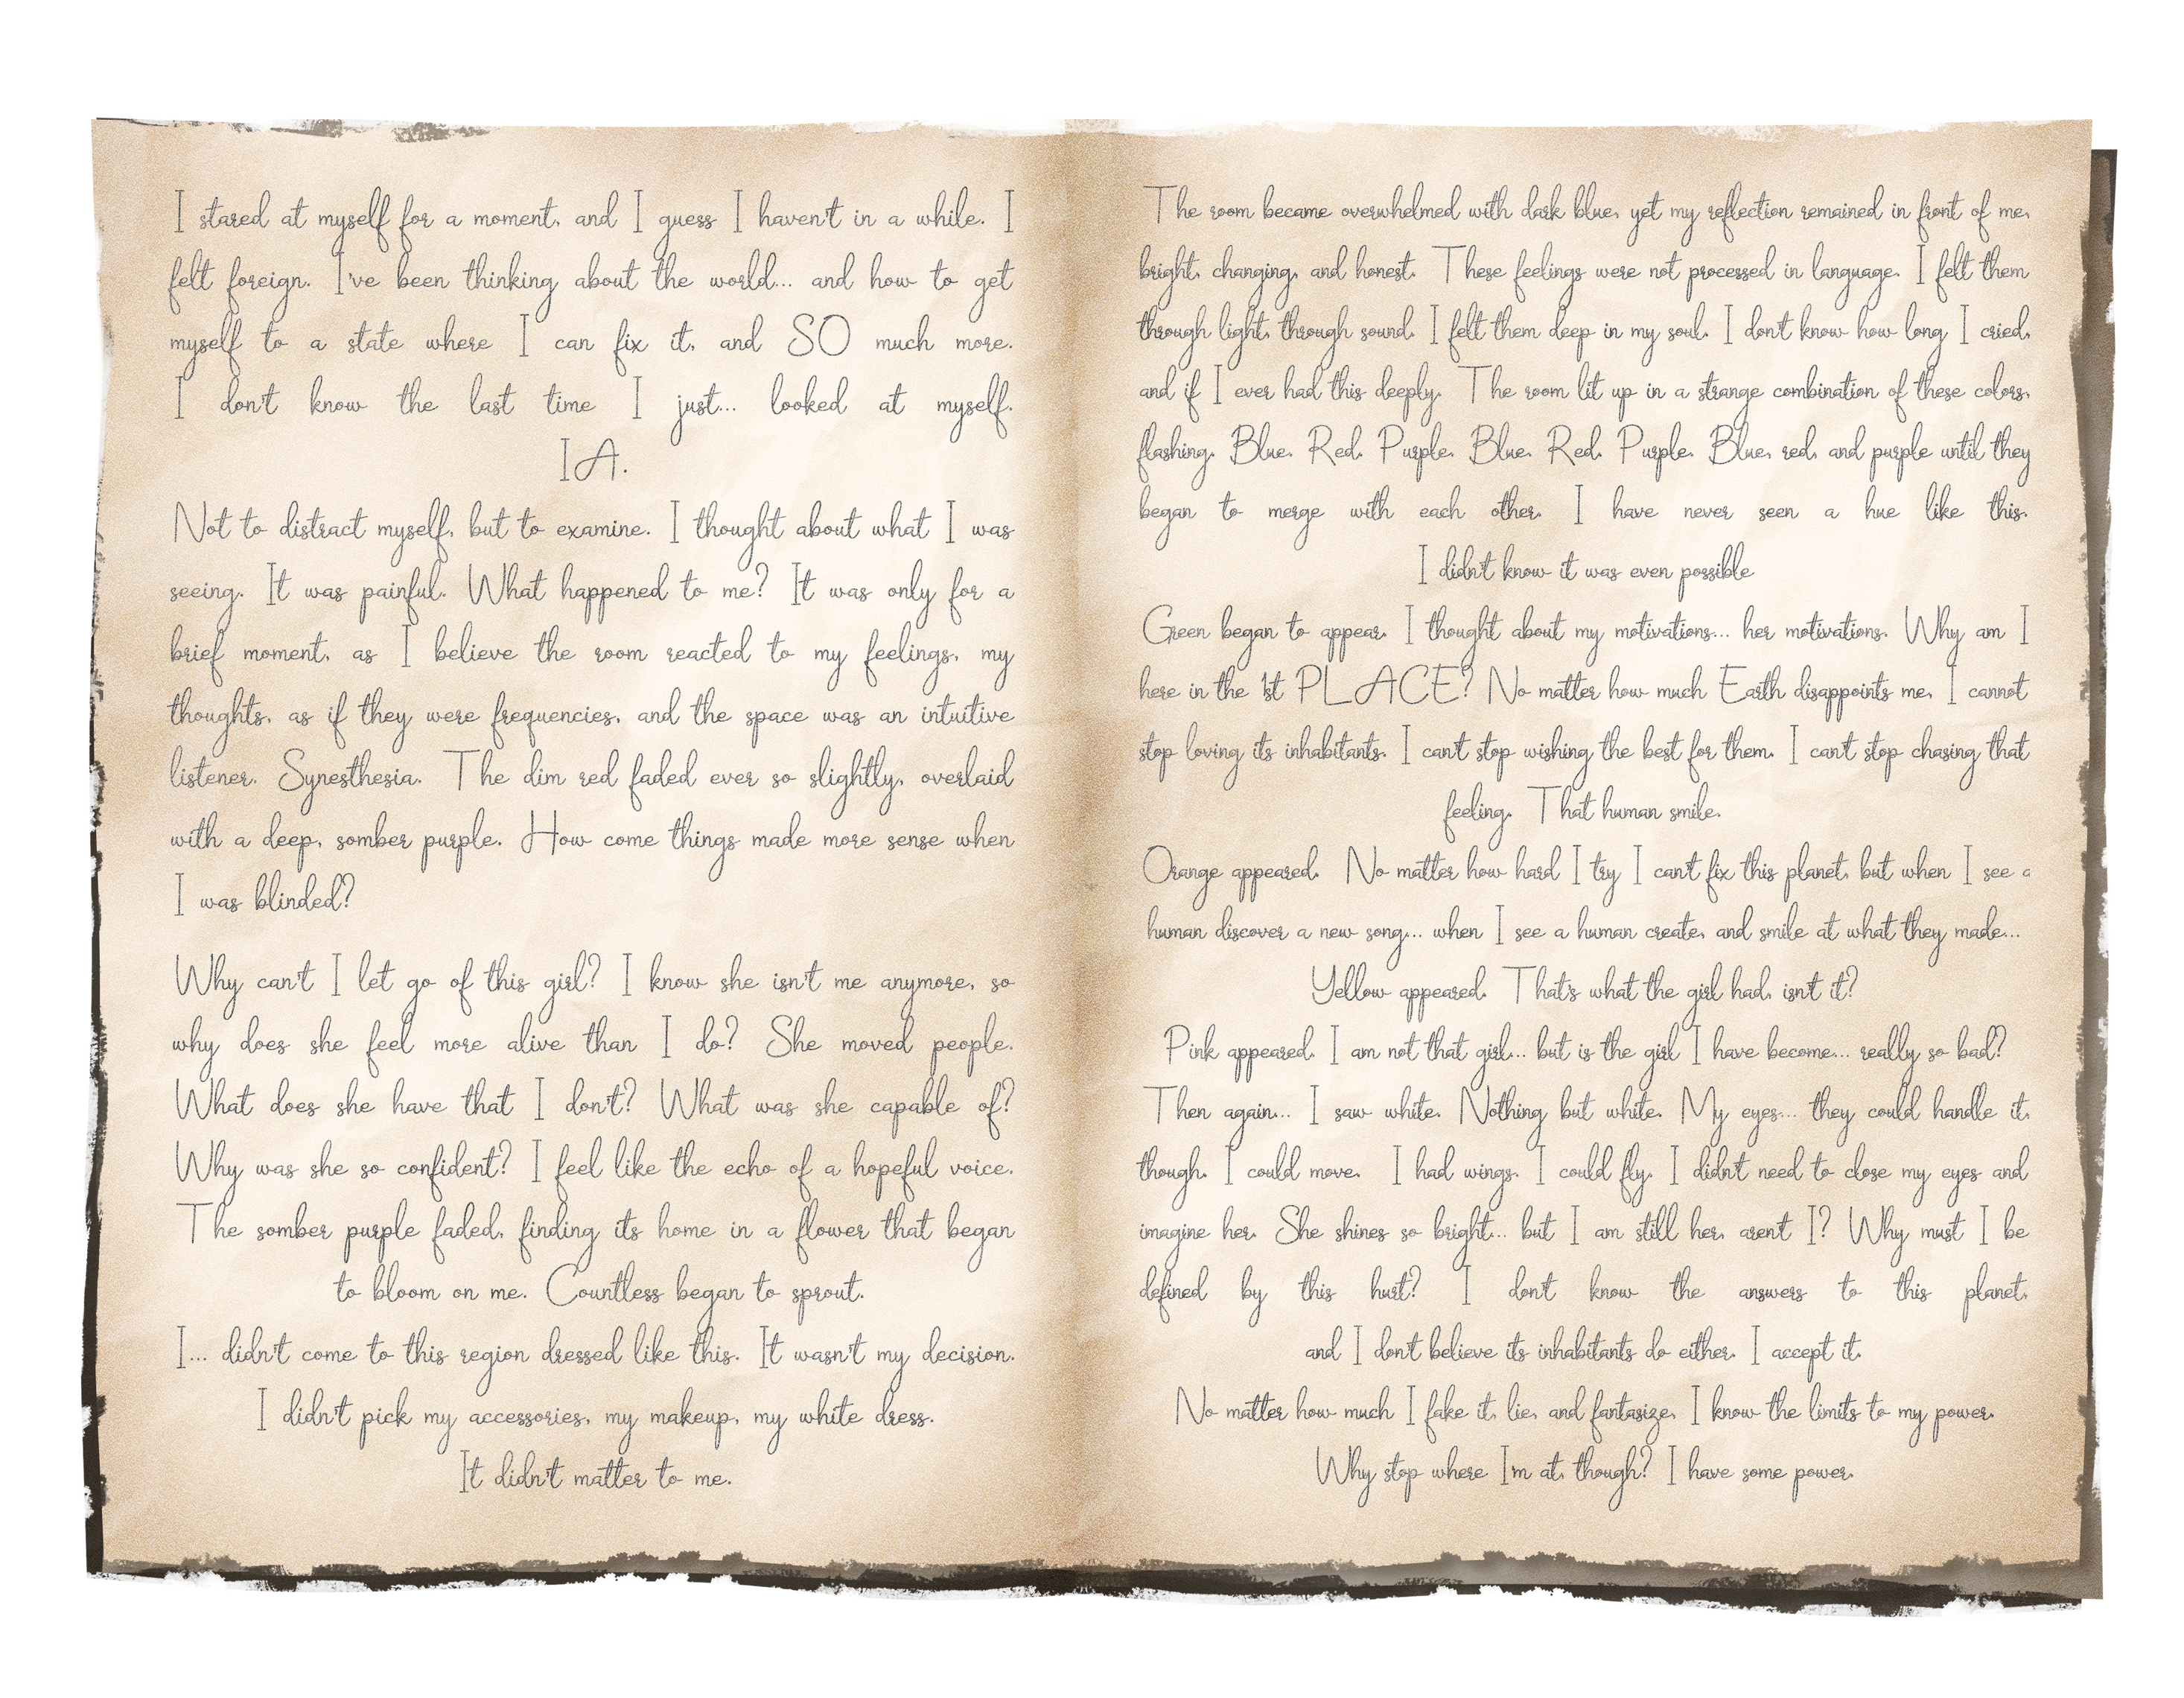 I stared at myself for a moment, and I guess I haven't in a while. I
felt foreign. I've been thinking about the world... and how to get
myself to a state where I can fix it, and SO much more.
I don't know the last time I just... looked at myself.
IA.
Not to distract myself, but to examine. I thought about what I was
seeing. It was painful. What happened to me? It was only for a
brief moment, as I believe the room reacted to my feelings, my
thoughts, as if they were frequencies, and the space was an intuitive
listener. Synesthesia. The dim red faded ever so slightly, overlaid
with a deep, somber purple. How come things made more sense when
I was blinded?
Why can't I let go of this girl? I know she isn't me anymore, so
why does she feel more alive than I do? She moved people.
What does she have that I don't? What was she capable of?
Why was she so confident? I feel like the echo of a hopeful voice.
The somber purple faded, finding its home in a flower that began
to bloom on me. Countless began to sprout.
I... didn't come to this region dressed like this. It wasn't my decision.
I didn't pick my accessories, my makeup, my white dress.
It didn't matter to me.
The room became overwhelmed with dark blue, yet my reflection remained in front of me,
bright, changing, and honest. These feelings were not processed in language. I felt them
through light, through sound. I felt them deep in my soul. I don't know how long I cried,
and if I ever had this deeply. The room lit up in a strange combination of these colors,
flashing. Blue. Red. Purple. Blue. Red. Purple. Blue, red, and purple until they
began to merge with each other. I have never seen a hue like this.
I didn't know it was even possible
Green began to appear. I thought about my motivations... her motivations. Why am I
here in the 1st PLACE? No matter how much Earth disappoints me, I cannot
stop loving its inhabitants. I can't stop wishing the best for them. I can't stop chasing that
feeling. That human smile.
Orange appeared. No matter how hard I try I can't fix this planet, but when I see a
human discover a new song... when I see a human create, and smile at what they made...
Yellow appeared. That's what the girl had, isn't it?
Pink appeared. I am not that girl... but is the girl I have become... really so bad?
Then again... I saw white. Nothing but white. My eyes... they could handle it,
though. I could move. I had wings. I could fly. I didn't need to close my eyes and
imagine her. She shines so bright... but I am still her, aren't I? Why must I be
defined by this hurt? I don't know the answers to this planet,
and I don't believe its inhabitants do either. I accept it.
No matter how much I fake it, lie, and fantasize, I know the limits to my power.
Why stop where I'm at, though? I have some power.